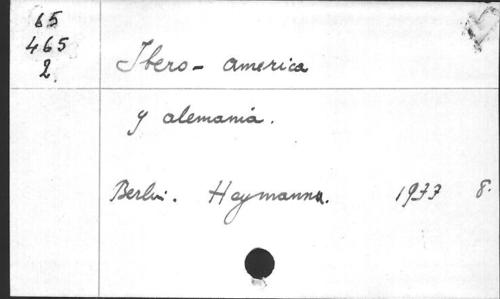 65
465
2
Ibero-america
y alemaniá.
Berlin. Heymanns. 1933 8.